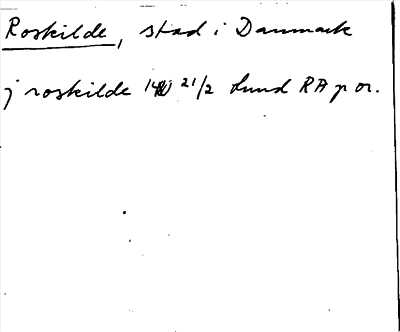 Roskilde, stad i Danmark
j roskilde 21/2 Lund RA p or.